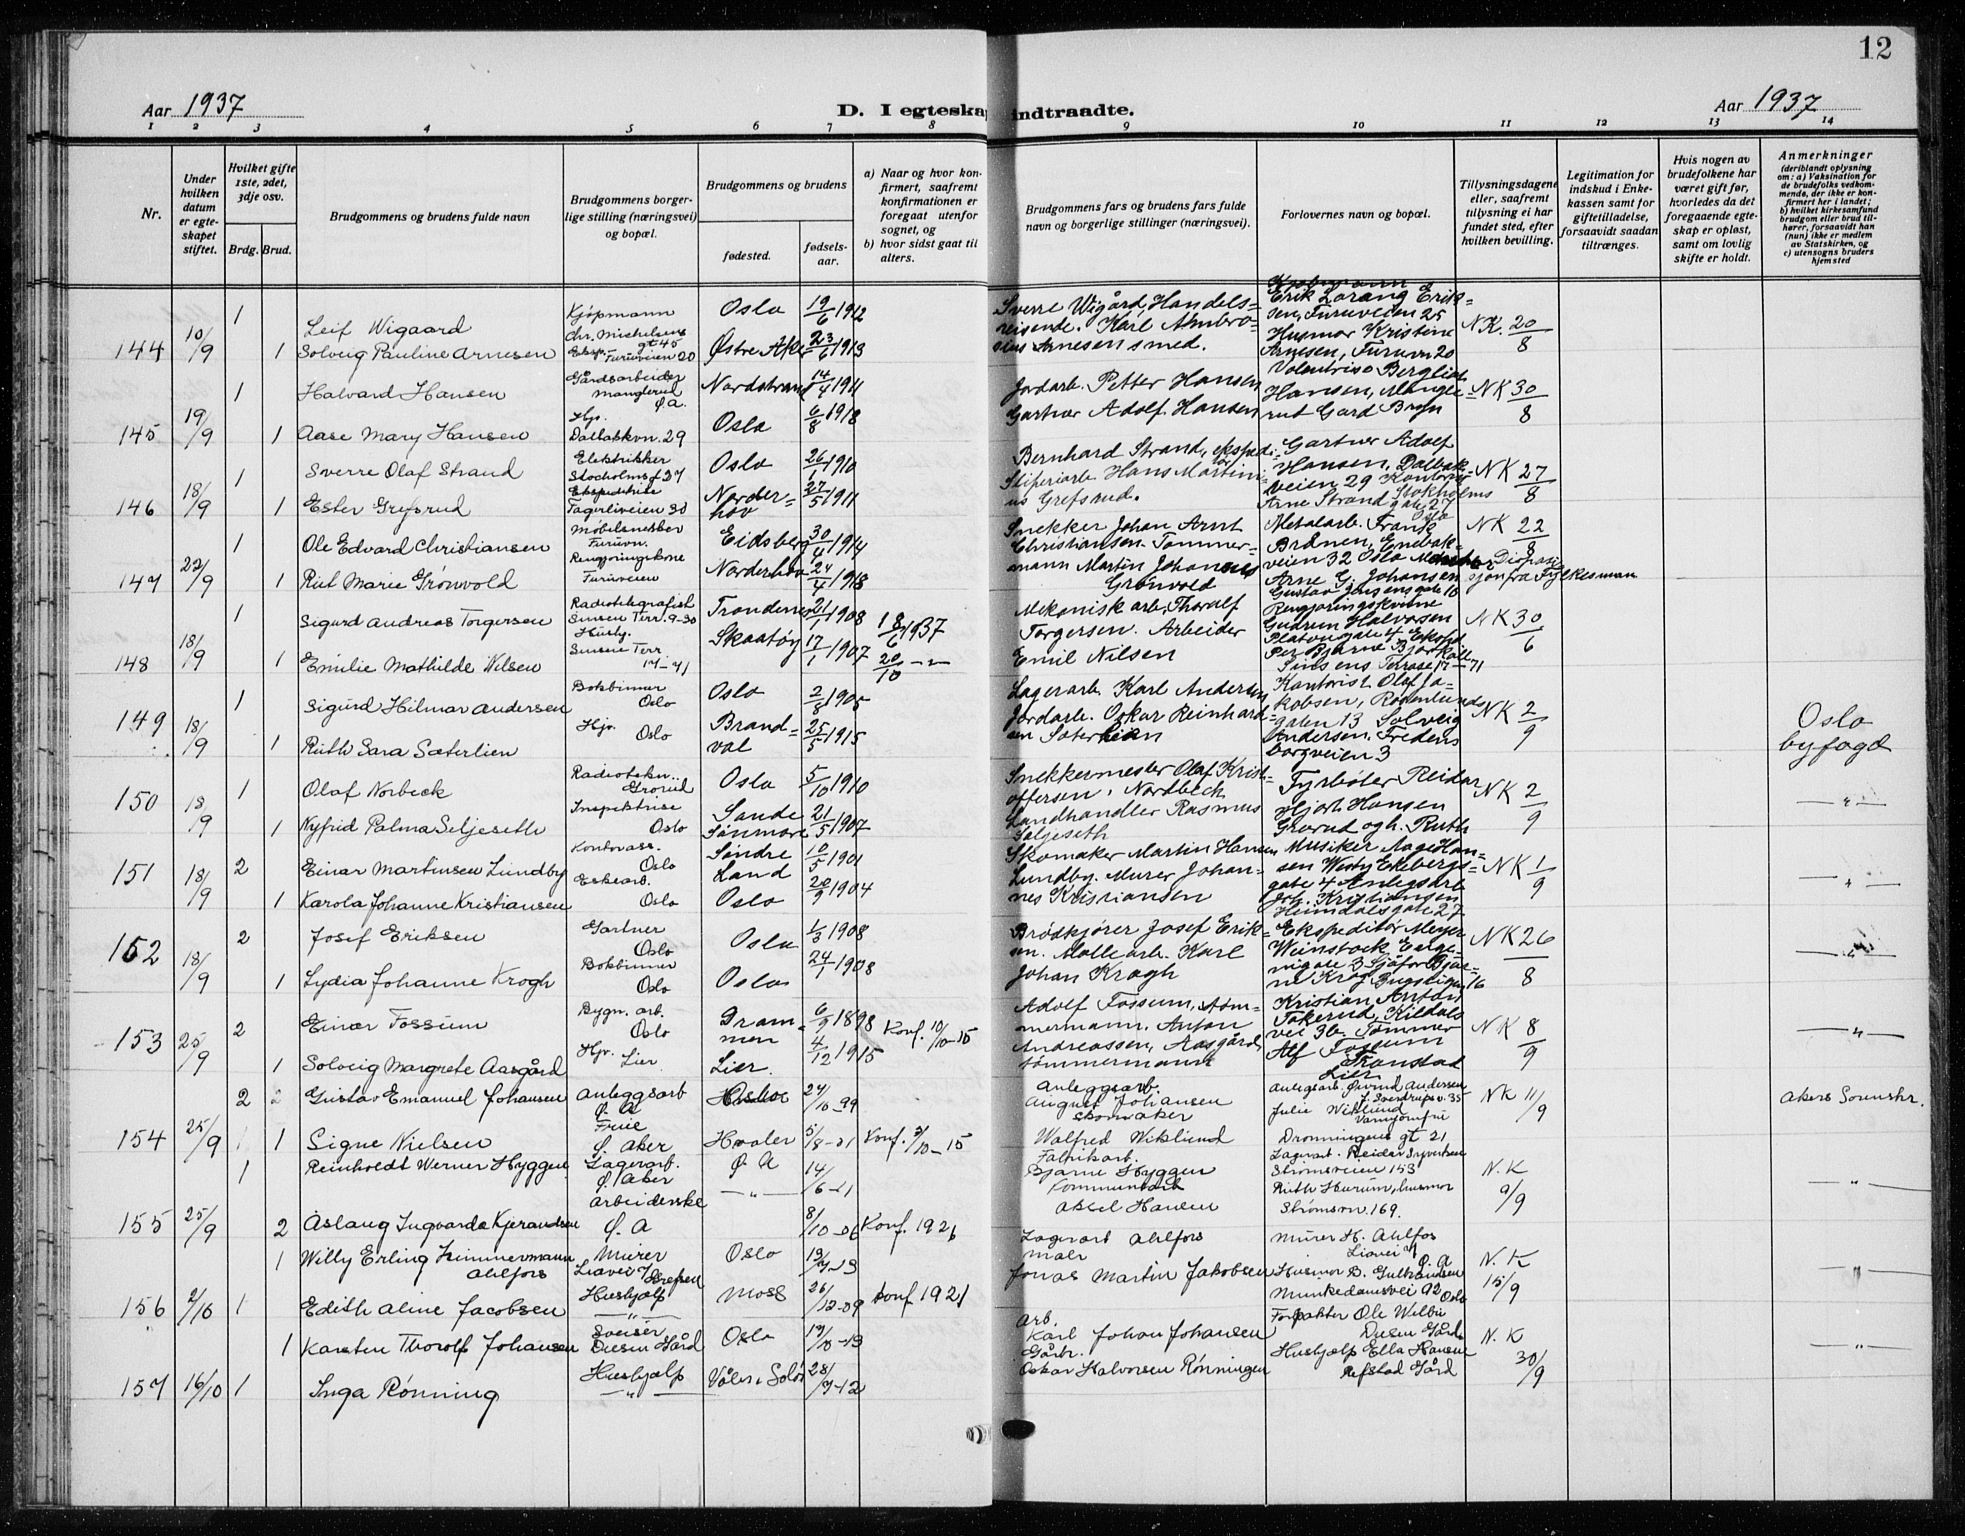 12
Aar 1937
D. I egteskap indtraadte.
Aar 1937
1 2 3 4 5 6 7 8 9 10 11 12 13 14
Nr.
Under hvilken datum er egteskapet stiftet.
Hvilket gifte 1ste, 2det, 3dje osv.
Brdg. Brud.
Brudgommens og brudens fulde navn
Brudgommens borgerlige stilling (næringsvei) og bopæl.
Brudgommens og brudens
fødested.
fødsels-aar.
a) Naar og hvor konfirmert, saafremt konfirmationen er foregaat utenfor sognet, og
b) hvor sidst gaat til alters.
Brudgommens fars og brudens fars fulde navn og borgerlige stillinger (næringsvei).
Forlovernes navn og bopæl.
Tillysningsdagene eller, saafremt tillysning ei har fundet sted, efter hvilken bevilling.
Legitimation for indskud i Enkekassen samt for giftetilladelse, forsaavidt saadan tiltrænges.
Hvis nogen av brudefolkene har været gift før, hvorledes da det foregaaende egteskap er opløst, samt om lovlig skifte er holdt.
Anmerkninger
(deriblandt oplysning om: a) Vaksination for de brudefolks vedkommende, der ikke er konfirmert her i landet;
b) hvilket kirkesamfund brudgom eller brud tilhører, forsaavidt han (hun) ikke er medlem av Statskirken, og
c) utensogns bruders hjemsted
144 10/9 1 Leif Wigaard Kjøpmann Chr. Michelsens gt 45 Oslo 19/6 1912 Sverre Wigård, Handelsreisende. Erik Lorang Eriksen, Furuveien 25 NK. 20/8
1 Solveig Pauline Arnesen Eksp. Furuveien 20 Østre Aker 23/6 1913 Karl Ambrosius Arnesen smed. Husmor Kristine Arnesen, Furuvn 20
145 19/9 1 Halvard Hansen Gårdsarbeider Manglerud Ø.A. Nordstrand 14/4 1911 Jordarb. Petter Hansen Hansen, Manglerud Gård Bryn NK 30/8
1 Aase Mary Hansen Hjv. Dalbakkvn. 29 Oslo 6/8 1918 Gartner Adolf Hansen Gartner Adolf Hansen, Dalbakveien 29
146 18/9 1 Sverre Olaf Strand Elektrikker Stocholmsgt 27 Oslo 26/1 1910 Bernhard Strand, ekspeditør Kontorist Arne Strand Stokholmsgate 27 Oslo NK 27/8
1 Ester Grefsrud Ekspeditrise Fagerliveien 30 Norderhov 27/5 1911 Sliperiarb. Hans Martinius Grefsrud.
147 22/9 1 Ole Edvard Christiansen Møbelsnekker Furuvn. Eidsberg 30/4 1914 Snekker Johan Arnt Christiansen. Metalarb. Frank Brånen, Enebakveien 32 Oslo NK 22/8
1 Rut Marie Grønvold Rengjøringskone Furuveien Norderhov 24/4 1913 Tømmermann Martin Johannes Grønvold Arne G. Johansen Gustav Jensensgate 10 Dispensasjon fra Fylkesman
148 18/9 1 Sigurd Andreas Torgersen Radiotelegrafist Sinsen Terr. 9-30 Trondenes 21/1 1908 18/6 1937 Mekanisk arb. Thoralf Torgersen. Rengjøringskvinne Gudrun Halvorsen Platousgate 4 NK 30/6
1 Emilie Mathilde Nilsen Husbj. Sinsen Terr 17-71 Skaatøy 17/1 1907 20/10 -"- Arbeider Emil Nilsen Eksped Per Bjarne Bjørkoll Sinsens Terrase 17-71
149 18/9 1 Sigurd Hilmar Andersen Bokbinner Oslo Oslo 2/8 1905 Lagerarb. Karl Andersen Kontorist Olaf Jakobsen, Rodenlundsgaten 13 NK 2/9 Oslo byfogd
1 Ruth Sara Sæterlien Hjv. Oslo Brandval 25/5 1915 Jordarb. Oskar Reinhardsen Sæterlien Solveig Andersen. Fredensborgveien 3
150 18/9 1 Olaf Norbeck Radiotekn. Grorud Oslo 5/10 1910 Snekkermester Olaf Kristoffersen, Nordbeck Fyrbøter Reidar Hjort Hansen NK 2/9 -"-
1 Nyfrid Palma Seljeseth Inspektrise Oslo Sande Sønmøre 21/5 1907 Landhandler Rasmus Seljeseth Grorud ogh. Ruth
151 18/9 2 Einar Martinsen Lundby Kontorass. Oslo Søndre Land 10/5 1901 Skomaker Martin Hansen Lundby. Musiker Aage Hansen Westy Ekebergsgate 4 NK 1/9 -"-
1 Karola Johanne Kristiansen Eskearb. Oslo Oslo 20/9 1904 Murer Johannes Kristiansen Anlegsarb Joh. Kristiansen Heimdalsgate 27
152 18/9 2 Josef Eriksen Gartner Oslo Oslo 1/3 1908 Brødkjører Josef Eriksen. Ekspeditør Meyer Weinstock NK 26/8 -"-
1 Lydia Johanne Krogh Bokbinner Oslo Oslo 24/1 1908 Mølle arb. Karl Johan Krogh Sjåfør Bjarne Krog 16
153 25/9 2 Einar Fossum Bygn. arb. Oslo Drammen 6/9 1898 Konf. 10/10-15 Adolf Fossum, tømmermann. Kristian Anton Tøkerud, Kildalsvei 36 NK 8/9 -"-
1 Solveig Margrete Aasgård Hjv. Lier Lier. 4/12 1915 Anton Andreassen, Aasgård, tømmermann Tømmer Alf Fossum Transtad Lier
154 25/9 2 Gustav Emanuel Johansen Anleggsarb Ø. A Oslo 24/10-99 Anleggsarb. August Johansen Skomaker Anlegsarb. Øivind Andersen J. Sverdrupsv. 35 NK 11/9 Akers Sorenskr.
1 Signe Nielsen Frue Ø. Aker Hvaler 5/8-01 Konf. 3/10-15 Walfred Wiklund Julie Wiklund Dronningens gt 21
155 25/9 1 Reinholdt Werner Hyggen Lagerarb. Ø. Aker Ø A 14/6-11 Fabrikarb. Bjarne Hyggen Lagerarb. Reidar Syvertsen Strømsveien 153 N.K 9/9 -"-
2 Aslaug Ingvarda Kjerandsen Arbeiderske Ø. A -"- 8/10-06 Konf. 1921 Aksel Hansen Ruth Hurum, husmor Strømsvn 169.
156 2/10 1 Willy Erling Zimmermann Ahlfors Murer Liavei 7 Grefsen Oslo 19/7-13 Lagerarb Ahlfors Murer H. Ahlfos Liavei 7 Ø.A N.K 15/9 -"-
1 Edith Aline Jacobsen Hushjælp -"- Moss 26/12-09 Konf. 1921 Maler Jonas Martin Jakobsen Husmor D. Gulbrandsen Munkedamsvei 92 Oslo
157 16/10 1 Karsten Thorolf Johansen Sveiser Disen Gård Oslo 19/10-13 Arb. Karl Johan Johansen Forpakter Ole Wilbu Disen Gård N.K 30/9 -"-
1 Inga Rønning Hushjælp -"- Våler i Solør 28/7-12 Gårbr. Oskar Halvorsen Rønningen Hushjælp Ella Hansen Refstad Gård